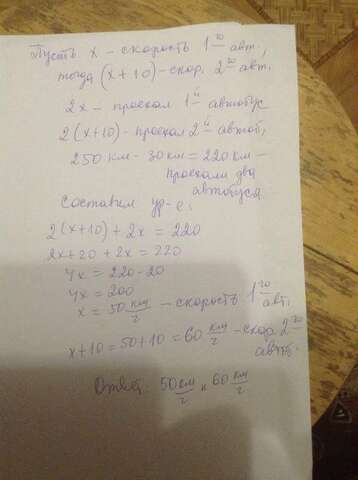 Пусть x – скорость 1го авт.,
тогда (x+10) – скор. 2го авт.
2x – проехал 1й автобус
2(x+10) – проехал 2й автоб.
250 км – 30 км = 220 км –
проехали два
автобуса
Составим ур-е:
2(x+10) + 2x = 220
2x+20 + 2x = 220
4x = 220-20
4x = 200
x = 50 км/ч – скорость 1го авт.
x+10 = 50+10 = 60 км/ч – скор 2го
автб.
Ответ: 50 км/ч и 60 км/ч